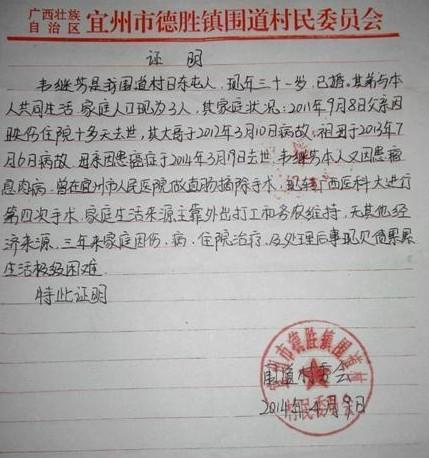 广西壮族
自治区 宜州市德胜镇围道村民委员会
证明
韦继芳是我围道村日东屯人,现年三十一岁,已婚。其弟与本
人共同生活,家庭人口现为3人,其家庭状况:2011年9月8日父亲因
跌伤住院十多天去世,其大哥于2012年3月10日病故,祖母于2013年7
月6日病故,母亲因患癌症于2014年3月19日去世,韦继芳本人又因患
息肉病,曾在宜州市人民医院做直肠摘除手术,现转广西医科大进行
第四次手术,家庭生活来源主靠外出打工和务农维持,无其他经
济来源,三年来家庭因伤、病、住院治疗,及处理后事现欠债累累
生活极级困难.
特此证明
围道村委会
2014年4月9日
宜州市德胜镇围道村
村民委员会